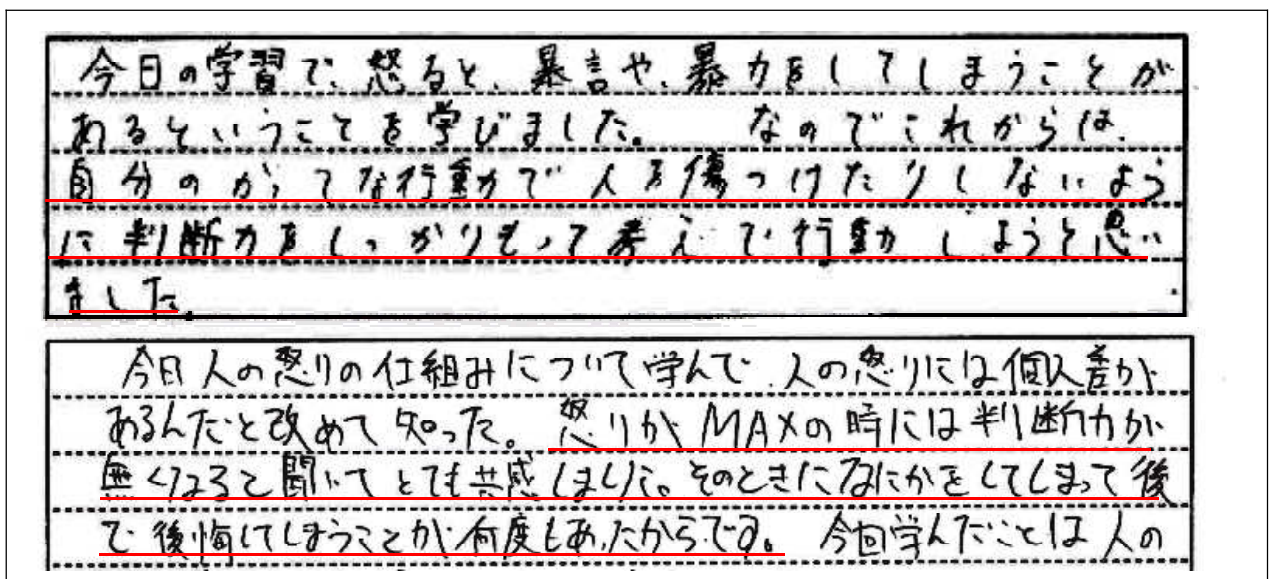 今日の学習で、怒ると、暴言や、暴力をしてしまうことが
あるということを学びました。 なのでこれからは、
自分のかってな行動で人を傷つけたりしないよう
に判断力をしっかりもって考えて行動しようと思い
ました。
今日人の怒りの仕組みについて学んで、人の怒りには個人差が
あるんだと改めて知った。怒りがMAXの時には判断力が
無くなると聞いてとても共感しました。そのときになにかをしてしまって後
で後悔してしまうことが何度もあったからです。 今回学んだことは人の